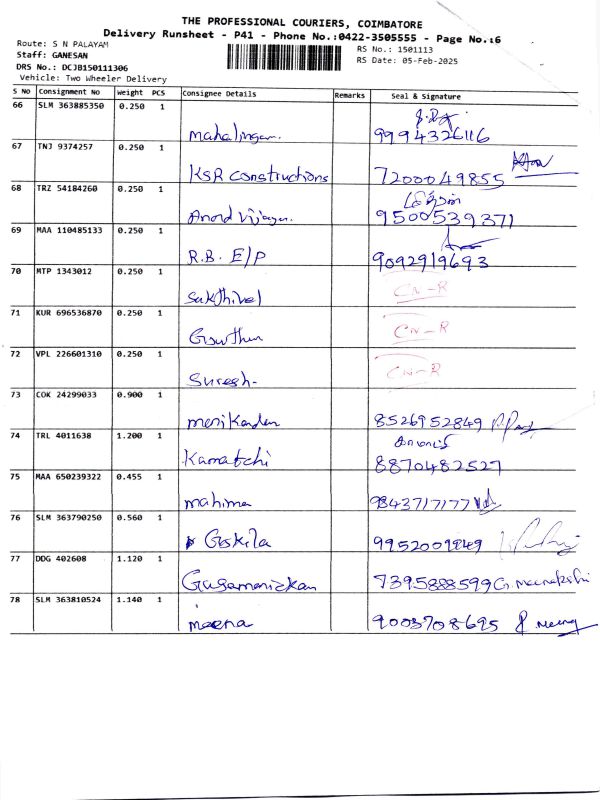 THE PROFESSIONAL COURIERS, COIMBATORE
Delivery Runsheet - P41 - Phone No.:0422-3505555 - Page No.:6
Route: S N PALAYAM
Staff: GANESAN
DRS No.: DCJB150111306
Vehicle: Two Wheeler Delivery
RS No.: 1501113
RS Date: 05-Feb-2025
S No Consignment No Weight PCS Consignee Details Remarks Seal & Signature
66 SLM 363885350 0.250 1
Mahalingam. 9994326116
67 TNJ 9374257 0.250 1
KSR constructions 7200049855
68 TRZ 54184260 0.250 1
Anond Vijayan. 9500539371
69 MAA 110485133 0.250 1
R.B. E/P 9092919693
70 MTP 1343012 0.250 1
Sakthivel CN-R
71 KUR 696536870 0.250 1
Gowthm CN-R
72 VPL 226601310 0.250 1
Suresh- CN-R
73 COK 24299033 0.900 1
manikanden 8526952849
74 TRL 4011638 1.200 1
Kamatchi 8870482527
75 MAA 650239322 0.455 1
mahima 9843717177
76 SLM 363790250 0.560 1
Gokila 9952009949
77 DDG 402608 1.120 1
Gugamanickam 7395888599 G. meenakshi
78 SLM 363810524 1.140 1
meena 9003708695